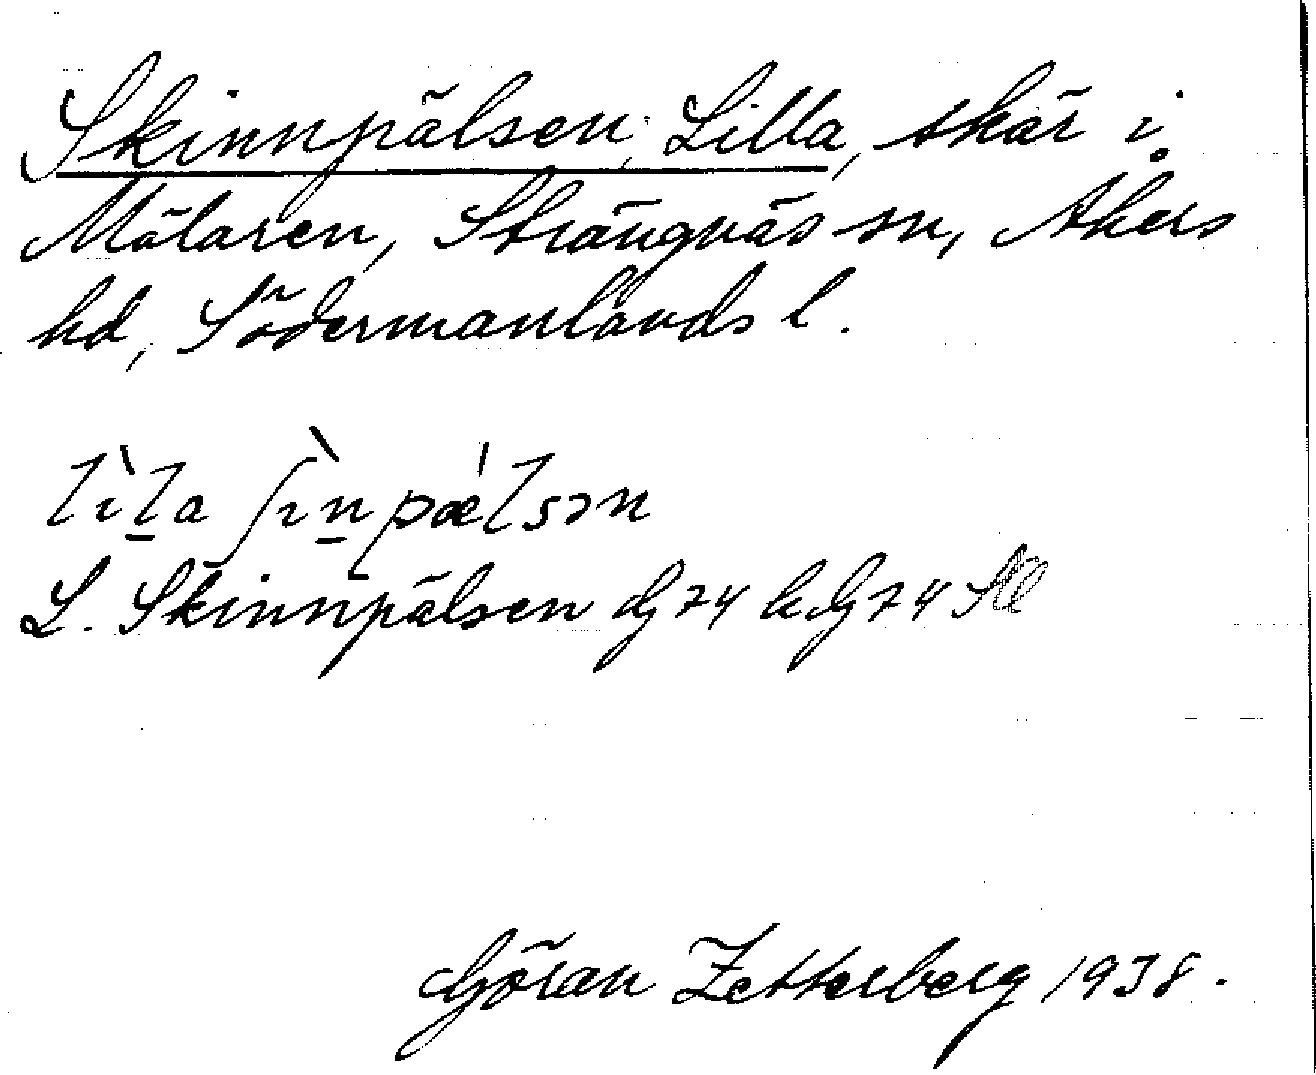 Skinnpälsen, Lilla, skär i
Mälaren, Strängnäs sn, Åkers
hd, Södermanlands l.
lìla ʃìnpæ̀lsɔn
L. Skinnpälsen G 74 h G 74
Göran Zetterberg 1938.